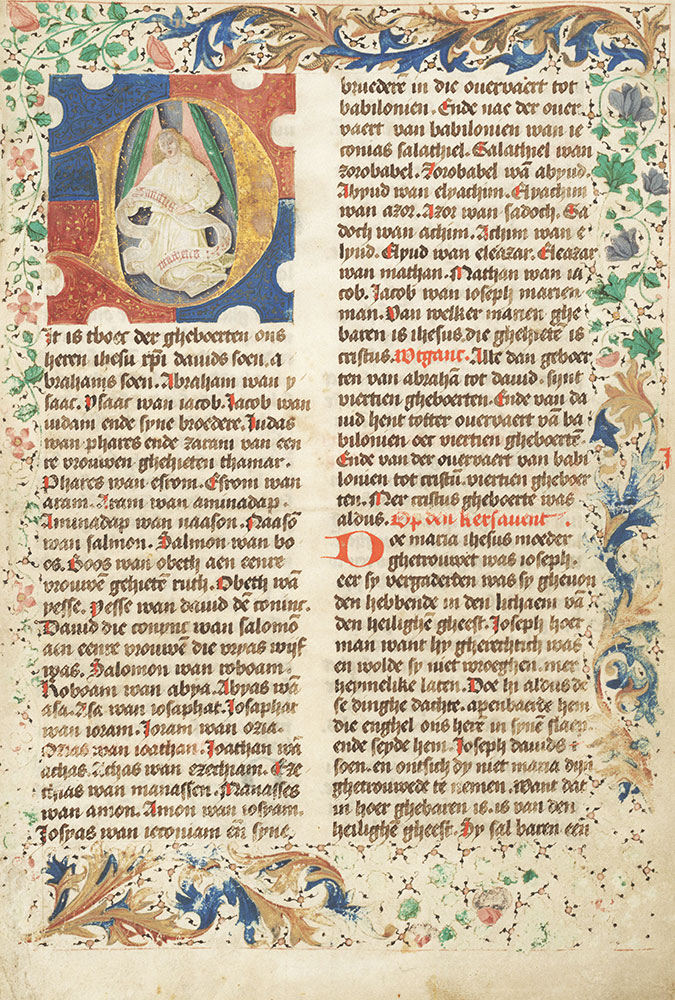 Sanctus
matheus
Dit is tboec der gheboerten ons
heren ihesu xpi davids soen. a
brahams soen. Abraham wan y
saac. Ysaac wan iacob. Iacob wan
iudam ende syne broedere. Iudas
wan phares ende zaram van een
re vrouwen ghehieten thamar.
Phares wan esrom. Esrom wan
aram. Aram wan aminadap.
Aminadap wan naason. Naasō
wan salmon. Salmon wan bo
os. Boos wan obeth aen eenre
vrouwē gehietē ruth. Obeth wā
yesse. Yesse wan dauid dē coninc.
Dauid die conync wan salomō
aen eenre vrouwē die vryas wijf
was. Salomon wan roboam.
Roboam wan abya. Abyas wā
asa. Asa wan iosaphat. Iosaphat
wan ioram. Ioram wan ozia.
Ozias wan ioathan. Ioathan wā
achas. Achas wan ezechiam. Eze
chias wan manassen. Manasses
wan amon. Amon wan iosyam.
Iosyas wan ieconiam eñ syne
bruederē in die ouervaert tot
babilonien. Ende nae der ouer
vaert van babilonien wan ie
conias salathiel. Salathiel wan
zorobabel. Zorobabel wā abyud.
Abyud wan elyachim. Elyachim
wan azor. Azor wan sadoch. Sa
doch wan achim. Achim wan e
lyud. Elyud wan eleazar. Eleazar
wan mathan. Mathan wan ia
cob. Iacob wan ioseph marien
man. Van welker marien ghe
baren is ihesus. die ghehietē is
cristus. Wtgant. Alle dan geboer
ten van abrahā tot dauid. synt
viertien gheboerten. Ende van da
uid hent totter ouervaert vā ba
bilonien oec viertien gheboertē.
Ende van der ouervaert van babi
lonien tot cristū. viertien gheboer
ten. Mer cristus gheboerte was
aldus. Op den kersauent.
Doe maria ihesus moeder
ghetrouwet was ioseph.
eer sy vergaderden was sy gheuon
den hebbende in den lichaem vā
den heilighē gheest. Ioseph hoer
man want hy gherechtich was
en wolde sy niet wroeghen. mer
heymelike laten. Doe hi aldus de
se dinghe dachte. apenbaerde hem
die enghel ons herē in synē slaep
ende seyde hem. Ioseph dauids
soen. en ontsich dy niet maria dijn
ghetrouwede te nemen. Want dat
in hoer ghebaren is. is van den
heilighē gheest. Sy sal baren een